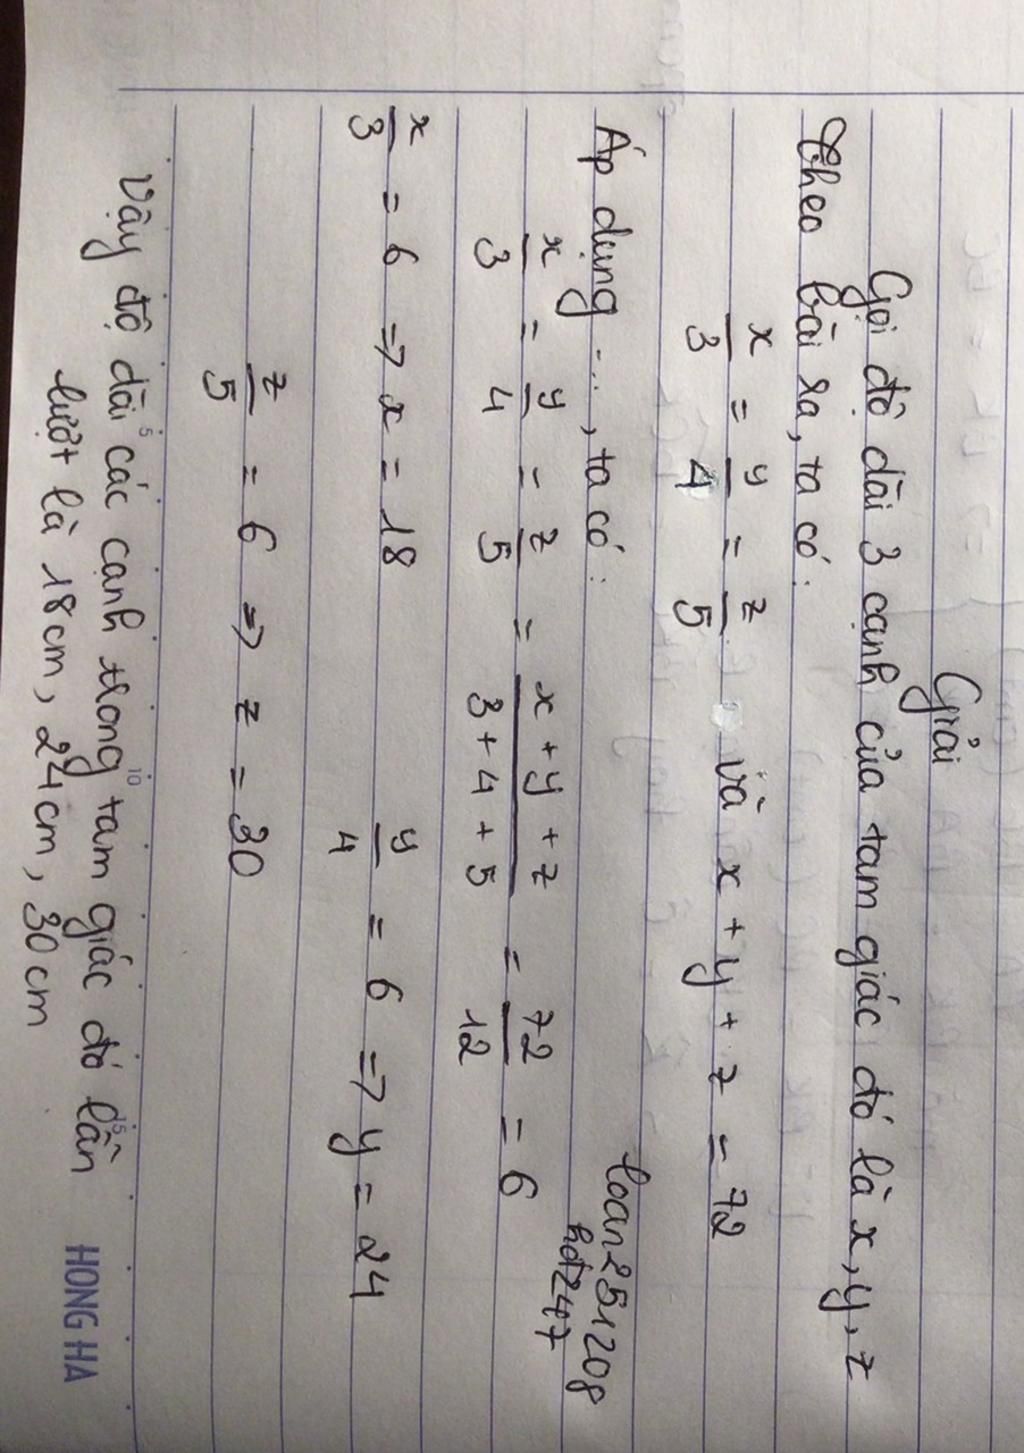 Giải
Gọi độ dài 3 cạnh của tam giác đó là x, y, z
Theo bài ra, ta có:
x/3 = y/4 = z/5 và x + y + z = 72
Áp dụng ..., ta có:
loan251208
hd247
x/3 = y/4 = z/5 = x + y + z/3 + 4 + 5 = 72/12 = 6
x/3 = 6 => x = 18 y/4 = 6 => y = 24
z/5 = 6 => z = 30
Vậy độ dài các cạnh trong tam giác đó lần
lượt là 18cm, 24cm, 30cm
5 10 15
HONG HA